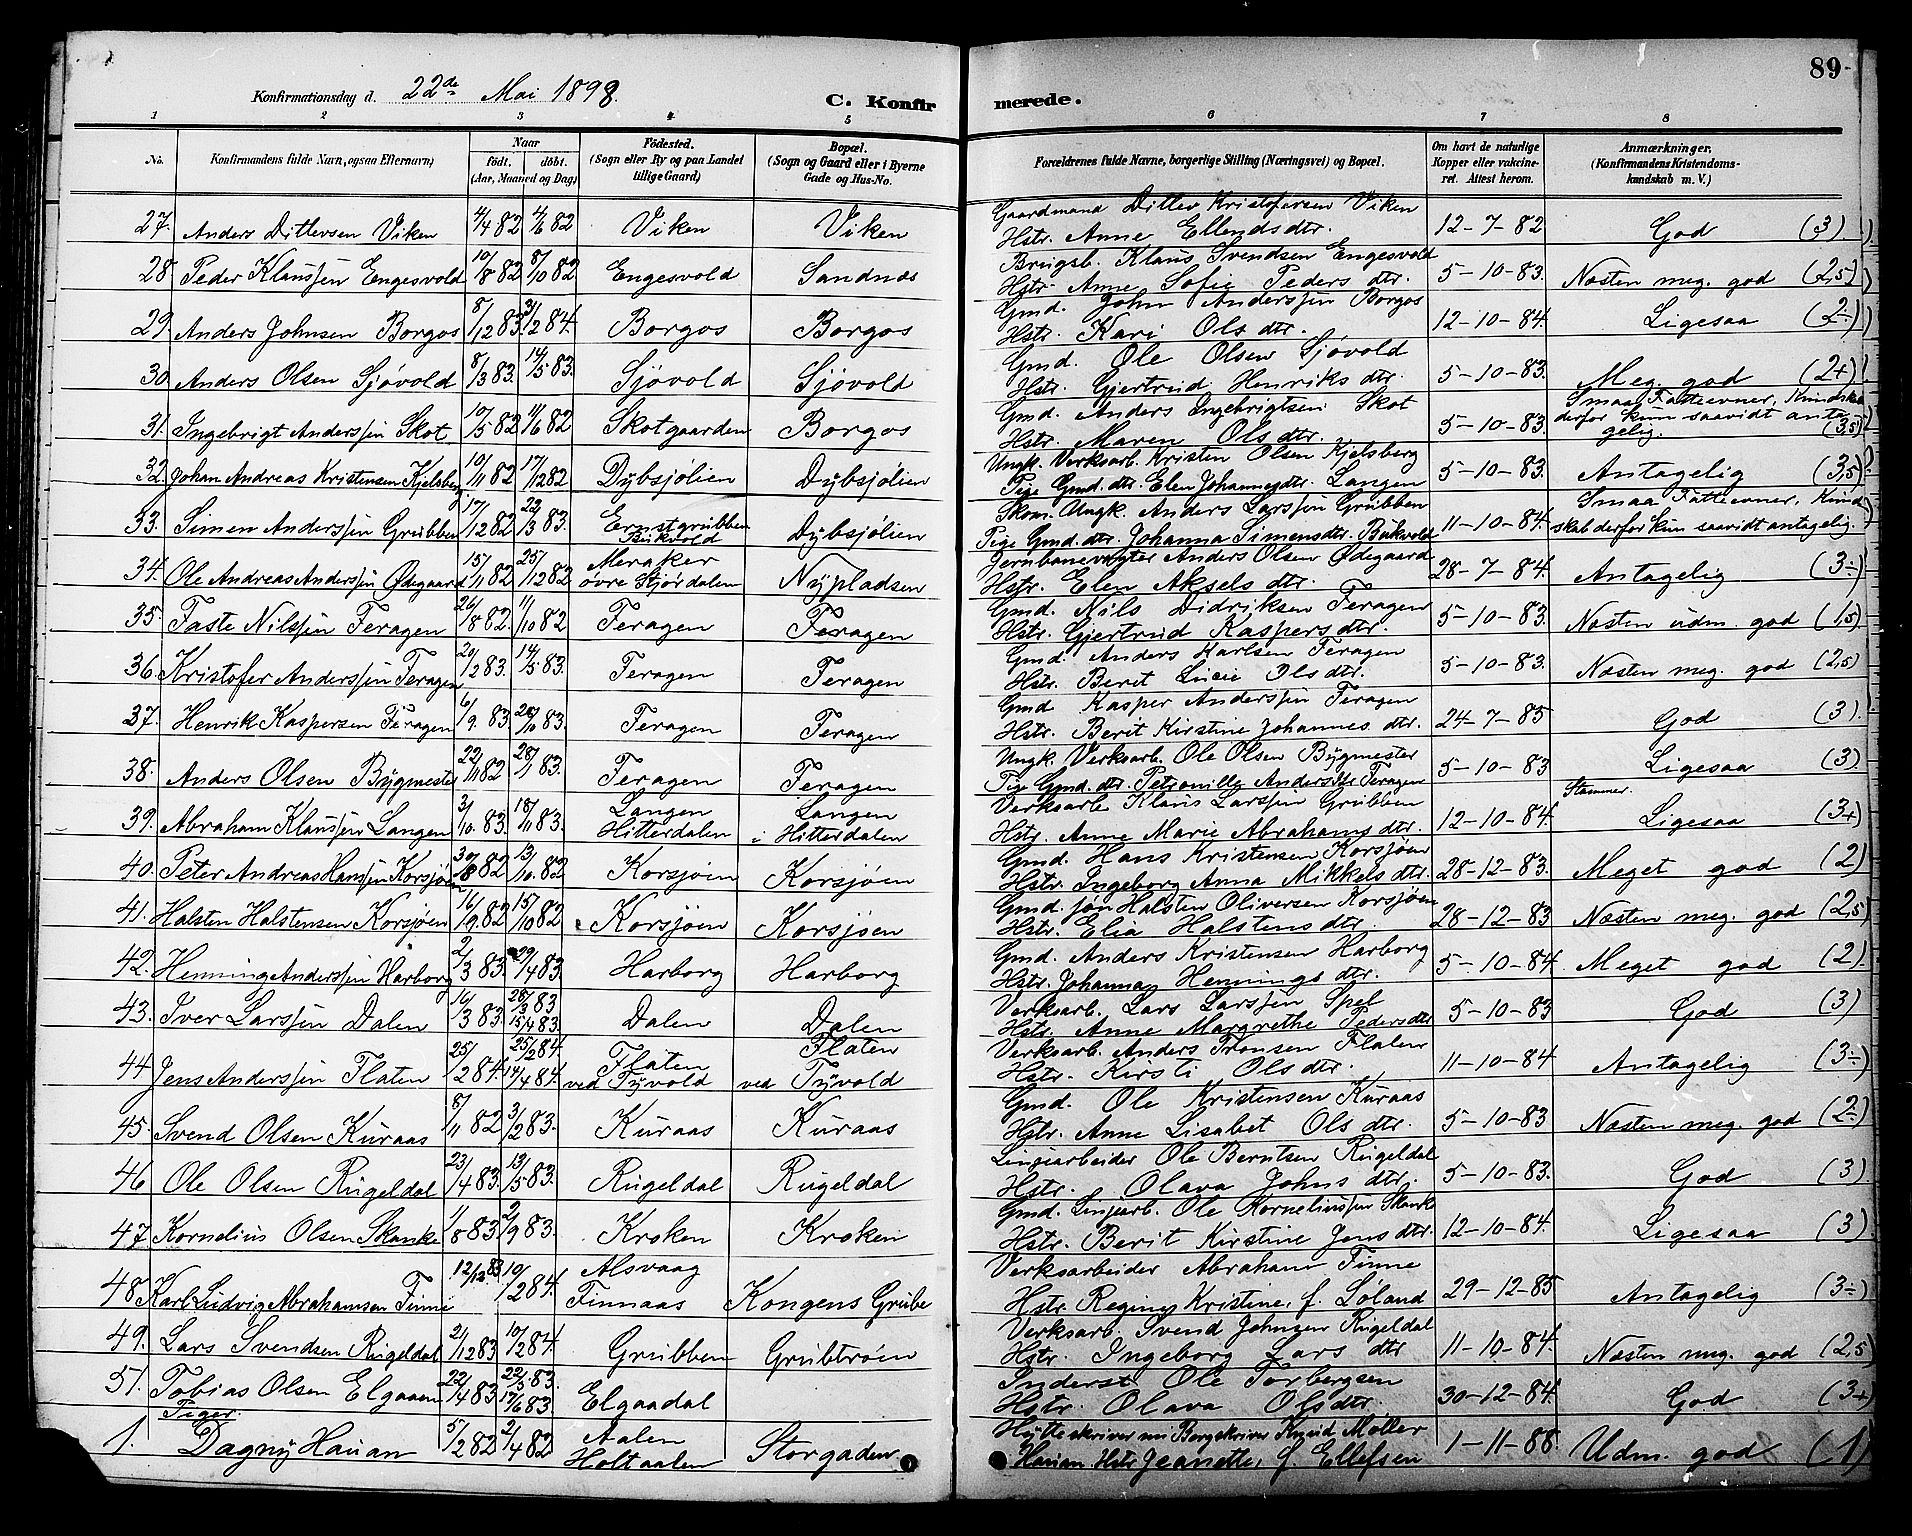 89
Konfirmationsdag d. 22de Mai 1898.
C. Konfirmerede.
1 2 3 4 5 6 7 8
No. Konfirmandens fulde Navn, ogsaa Efternavn) Naar födt, döbt. (Aar, Maaned og Dag) Födested. (Sogn eller By og paa Landet tillige Gaard) Bopæl. (Sogn og Gaard eller i Byerne Gade og Hus-No. Forældrenes fulde Navne, borgerlige Stilling (Næringsvei) og Bopæl. Om havt de naturlige Kopper eller vakcineret. Attest herom. Anmærkninger. (Konfirmandens Kristendomskundskab m. V.)
27. Anders Ditlevsen Viken 4/4 82 4/6 82 Viken Viken Gaardmand Ditlev Kristofersen Viken
Hstr. Anne Ellendsdtr. 12-7-82 God (3)
28. Peder Klaussen Engesvold 10/8 82 8/10 82 Engesvold Sandnæs Brugsb. Klaus Svendsen Engesvold
Hstr. Anne Sofie Pedersdtr. 5-10-83. Næsten meg. god (2,5)
29. Anders Johnsen Borgos 8/12 83. 3/2 84. Borgos Borgos Gmd. John Anderssen Borgos
Hstr. Kari Olsdtr. 12-10-84. Ligesaa (2÷)
30. Anders Olsen Sjövold 8/3 83. 14/5 83. Sjövold Sjövold Gmd. Ole Olsen Sjövold
Hstr. Gjertrud Henriksdtr. 5-10-83. Meg. god (2+)
31. Ingebrigt Anderssen Skot 10/5 82 11/6 82 Skotgaarden Borgos Gmd. Anders Ingebrigtsen Skot
Hstr. Maren Olsdtr. 5-10-83. Smaa Fatteevner, Kundska
derfor kun saavidt anta
gelig. (3,5)
32. Johan Andreas Kristensen Kjelsberg 10/11 82 17/12 82 Dybsjölien Dybsjölien Ungk. Verksarb. Kristen Olsen Kjelsberg
Pige Gmd.dtr. Elen Johannesdtr. Langen 5-10-83. Antagelig (3,5)
33. Simen Anderssen Grubben 17/12 82 22/3 83. Ernstgrubben
Bukvold Dybsjölien Skom. Ungk. Anders Larssen Grubben
Pige Gmd.dtr. Johanna Simensdtr. Bukvold 11-10-84. Smaa Fatteevner, Kund
skab derfor kun saavidt antagelig.
34. Ole Andreas Anderssen Ödegaard 15/11 82 25/12 82 Meraker
övre Stjördalen Nypladsen Jernbanevogter Anders Olsen Ödegaard
Hstr. Elen Akselsdtr. 28-7-84. Antagelig (3÷)
35. Faste Nilssen Feragen 26/8 82. 1/10 82 Feragen Feragen Gmd. Nils Didriksen Feragen
Hstr. Gjertrud Kaspersdtr. 5-10-83. Næsten udm. god (1,5)
36. Kristofer Anderssen Feragen 20/12 83. 14/5 83. Feragen Feragen Gmd. Anders Karlsen Feragen
Hstr. Berit Lucie Olsdtr. 5-10-83. Næsten meg. god (2,5)
37. Henrik Kaspersen Feragen 6/9 83. 28/10 83. Feragen Feragen Gmd Kasper Anderssen Feragen
Hstr. Berit Kirstine Johannesdtr. 24-7-85 God (3)
38. Anders Olsen Bygmester 22/11 82 28/1 83. Feragen Feragen Ungk. Verksarb. Ole Olsen Bygmester
Pige Gmd.dtr. Petronille Andersdtr Feragen 5-10-83 Ligesaa (3)
39. Abraham Klaussen Langen 3/10. 83. 18/11 83. Langen
Hitterdalen Langen
i Hitterdalen Verksarb Klaus Larssen Grubben
Hstr. Anne Marie Abrahamsdtr. 12-10-84. Stammer.
Ligesaa (3+)
40. Peter Andreas Hanssen Korsjöen 30/8 82 13/10. 82 Korsjöen Korsjöen Gmd. Hans Kristensen Korsjöen
Hstr. Ingeborg Anna Mikkelsdtr. 28-12-83. Meget god (2)
41. Halsten Halstensen Korsjöen 16/9. 82 15/10 82 Korsjöen Korsjöen Gmd. Jon Halsten Oliversen Korsjöen
Hstr. Elia Halstensdtr. 28-12-83 Næsten meg. god (2,5)
42. Henning Anderssen Harborg 2/3 83. 29/4 83 Harborg Harborg Gmd. Anders Kristensen Harborg
Hstr. Johanna Henningsdtr. 5-10-84 Meget god (2)
43. Iver Larssen Dalen 16/3 83. 26/3 83
15/4 83. Dalen Dalen Verksarb. Lars Larssen Spel
Hstr. Anne Margrethe Pedersdtr 5-10-83 God (3)
44. Jens Anderssen Flaten 25/2 84. 25/2 84.
14/4 84. Flaten
ved Tyvold Flaten
ved Tyvold Verksarb. Anders Tronsen Flaten
Hstr. Kirsti Olsdtr. 11-10-84 Antagelig (3÷)
45. Svend Olsen Kuraas 8/11 82 3/2 83. Kuraas Kuraas Gmd. Ole Kristensen Kuraas
Hstr. Anne Lisabet Olsdtr. 5-10-83 Næsten meg. god (2÷)
46 Ole Olsen Rugeldal 23/4 83. 13/5 83. Rugeldal Rugeldal Linjearbeider Ole Berntsen Rugeldal
Hstr. Olava Johnsdtr. 5-10-83. God (3)
47. Kornelius Olsen Skanke 1/8 83 2/9 83. Kroken Kroken Gmd. Linjearb. Ole Korneliussen Skanke
Hstr. Berit Kirstine Jensdtr. 12-10-84. Ligesaa (3)
48. Karl Ludvig Abrahamsen Finne 12/12 83 10/2 84. Alsvaag
Finnaas Kongens Grube Verksarbeider Abraham Finne
Hstr. Regine Kristine, f. Löland 29-12-85 Antagelig (3÷)
49. Lars Svendsen Rugeldal 2/12 83 10/2 84. Grubben Grubtröen Verksarb. Svend Johnsen Rugeldal
Hstr. Ingeborg Larsdtr 11-10-84. Næsten meg. god (2,5)
51. Tobias Olsen Elgaaen 22/4 83 22/5 83.
17/6 83 Elgaadal Inderst Ole Torbergsen
Hstr. Olava Olsdtr. 30-12-84. God (3+)
Piger.
1. Dagny Hauan 5/2 82 2/4 82 Aalen
Holtaalen Storgaden Hytteskriver nu Bergskriver Knud Möller
Hauan. Hstr Jeanette, f. Ellefsen 1-11-88 Udm. god (1)